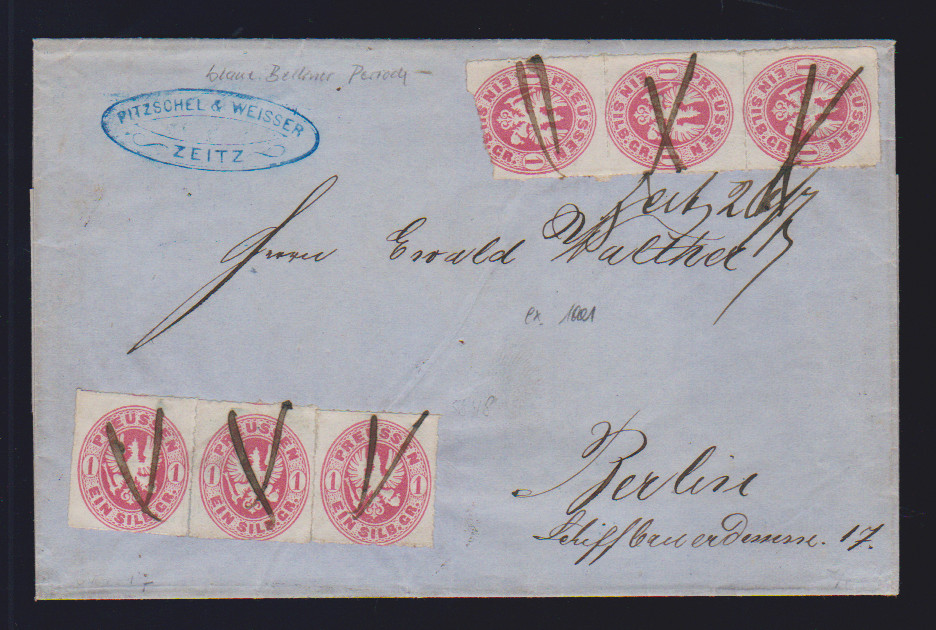 PITZSCHEL & WEISSER
ZEITZ
PREUSSEN 1 EIN SILB.GR. 1
PREUSSEN 1 EIN SILB.GR. 1
PREUSSEN 1 EIN SILB.GR. 1
Zeitz 26/7
Herrn Ewald Walther
ex.
PREUSSEN
1 1
EIN SILB.GR.
PREUSSEN
1 1
EIN SILB.GR.
PREUSSEN
1 1
EIN SILB.GR.
Berlin
Schiffbauerdamm. 17.